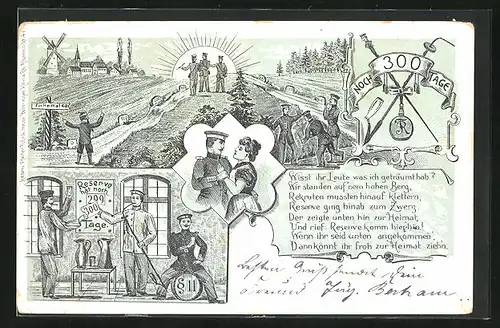 NOCH 300 TAGE
zur Heimat
R
Reserve
hat noch
299
300
Tage.
§ 11
Wisst ihr Leute was ich geträumt hab'?
Wir standen auf nem hohen Berg,
Rekruten mussten hinauf klettern,
Reserve ging hinab zum Zwerg,
Der zeigte unten hin zur Heimat,
Und rief: Reserve komm hierhin!
Wenn ihr seid unten angekommen,
Dann könnt ihr froh zur Heimat ziehn.
Besten Gruß sendet Dein
Freund